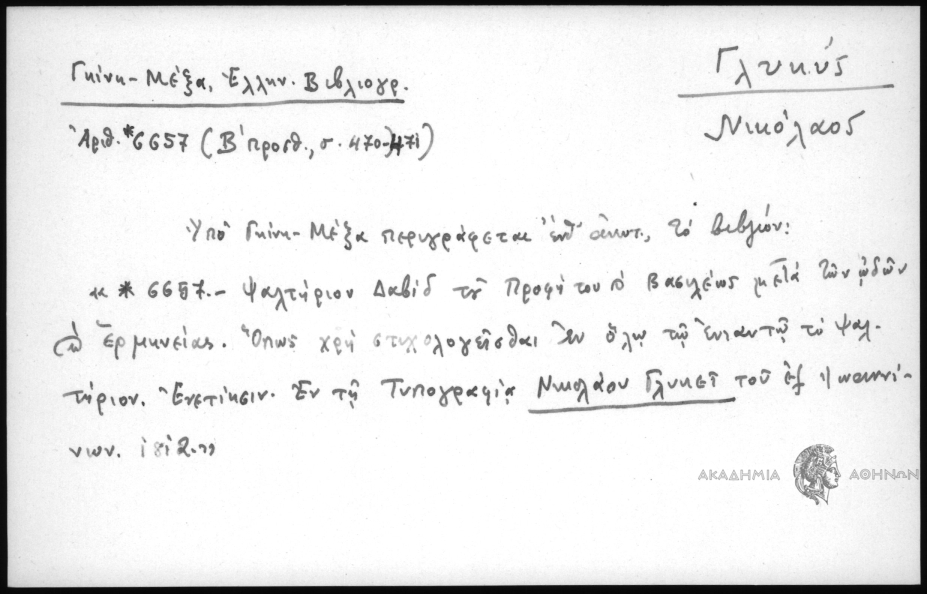 Γκίνη-Μέξα, Ἑλλην. Βιβλιογρ.
Γλυκύς
Νικόλαος
Ἀριθ. *6657 (Β' προσθ., σ. 470-471)
Ὑπό Γκίνη-Μέξα περιγράφεται τό βιβλίον:
« * 6657.- Ψαλτήριον Δαβίδ τοῦ Προφήτου Βασιλέως μετά τῶν ᾠδῶν
Ἑρμηνείας. Ὅπως χρή στιχολογεῖσθαι ἐν ὅλῳ τῷ ἐνιαυτῷ τό Ψαλ-
τήριον. Ἐνετίησιν. Ἐν τῇ Τυπογραφίᾳ Νικολάου Γλυκεῖ τοῦ ἐξ Ἰωαννί-
νων. 1812.»
ΑΚΑΔΗΜΙΑ ΑΘΗΝΩΝ